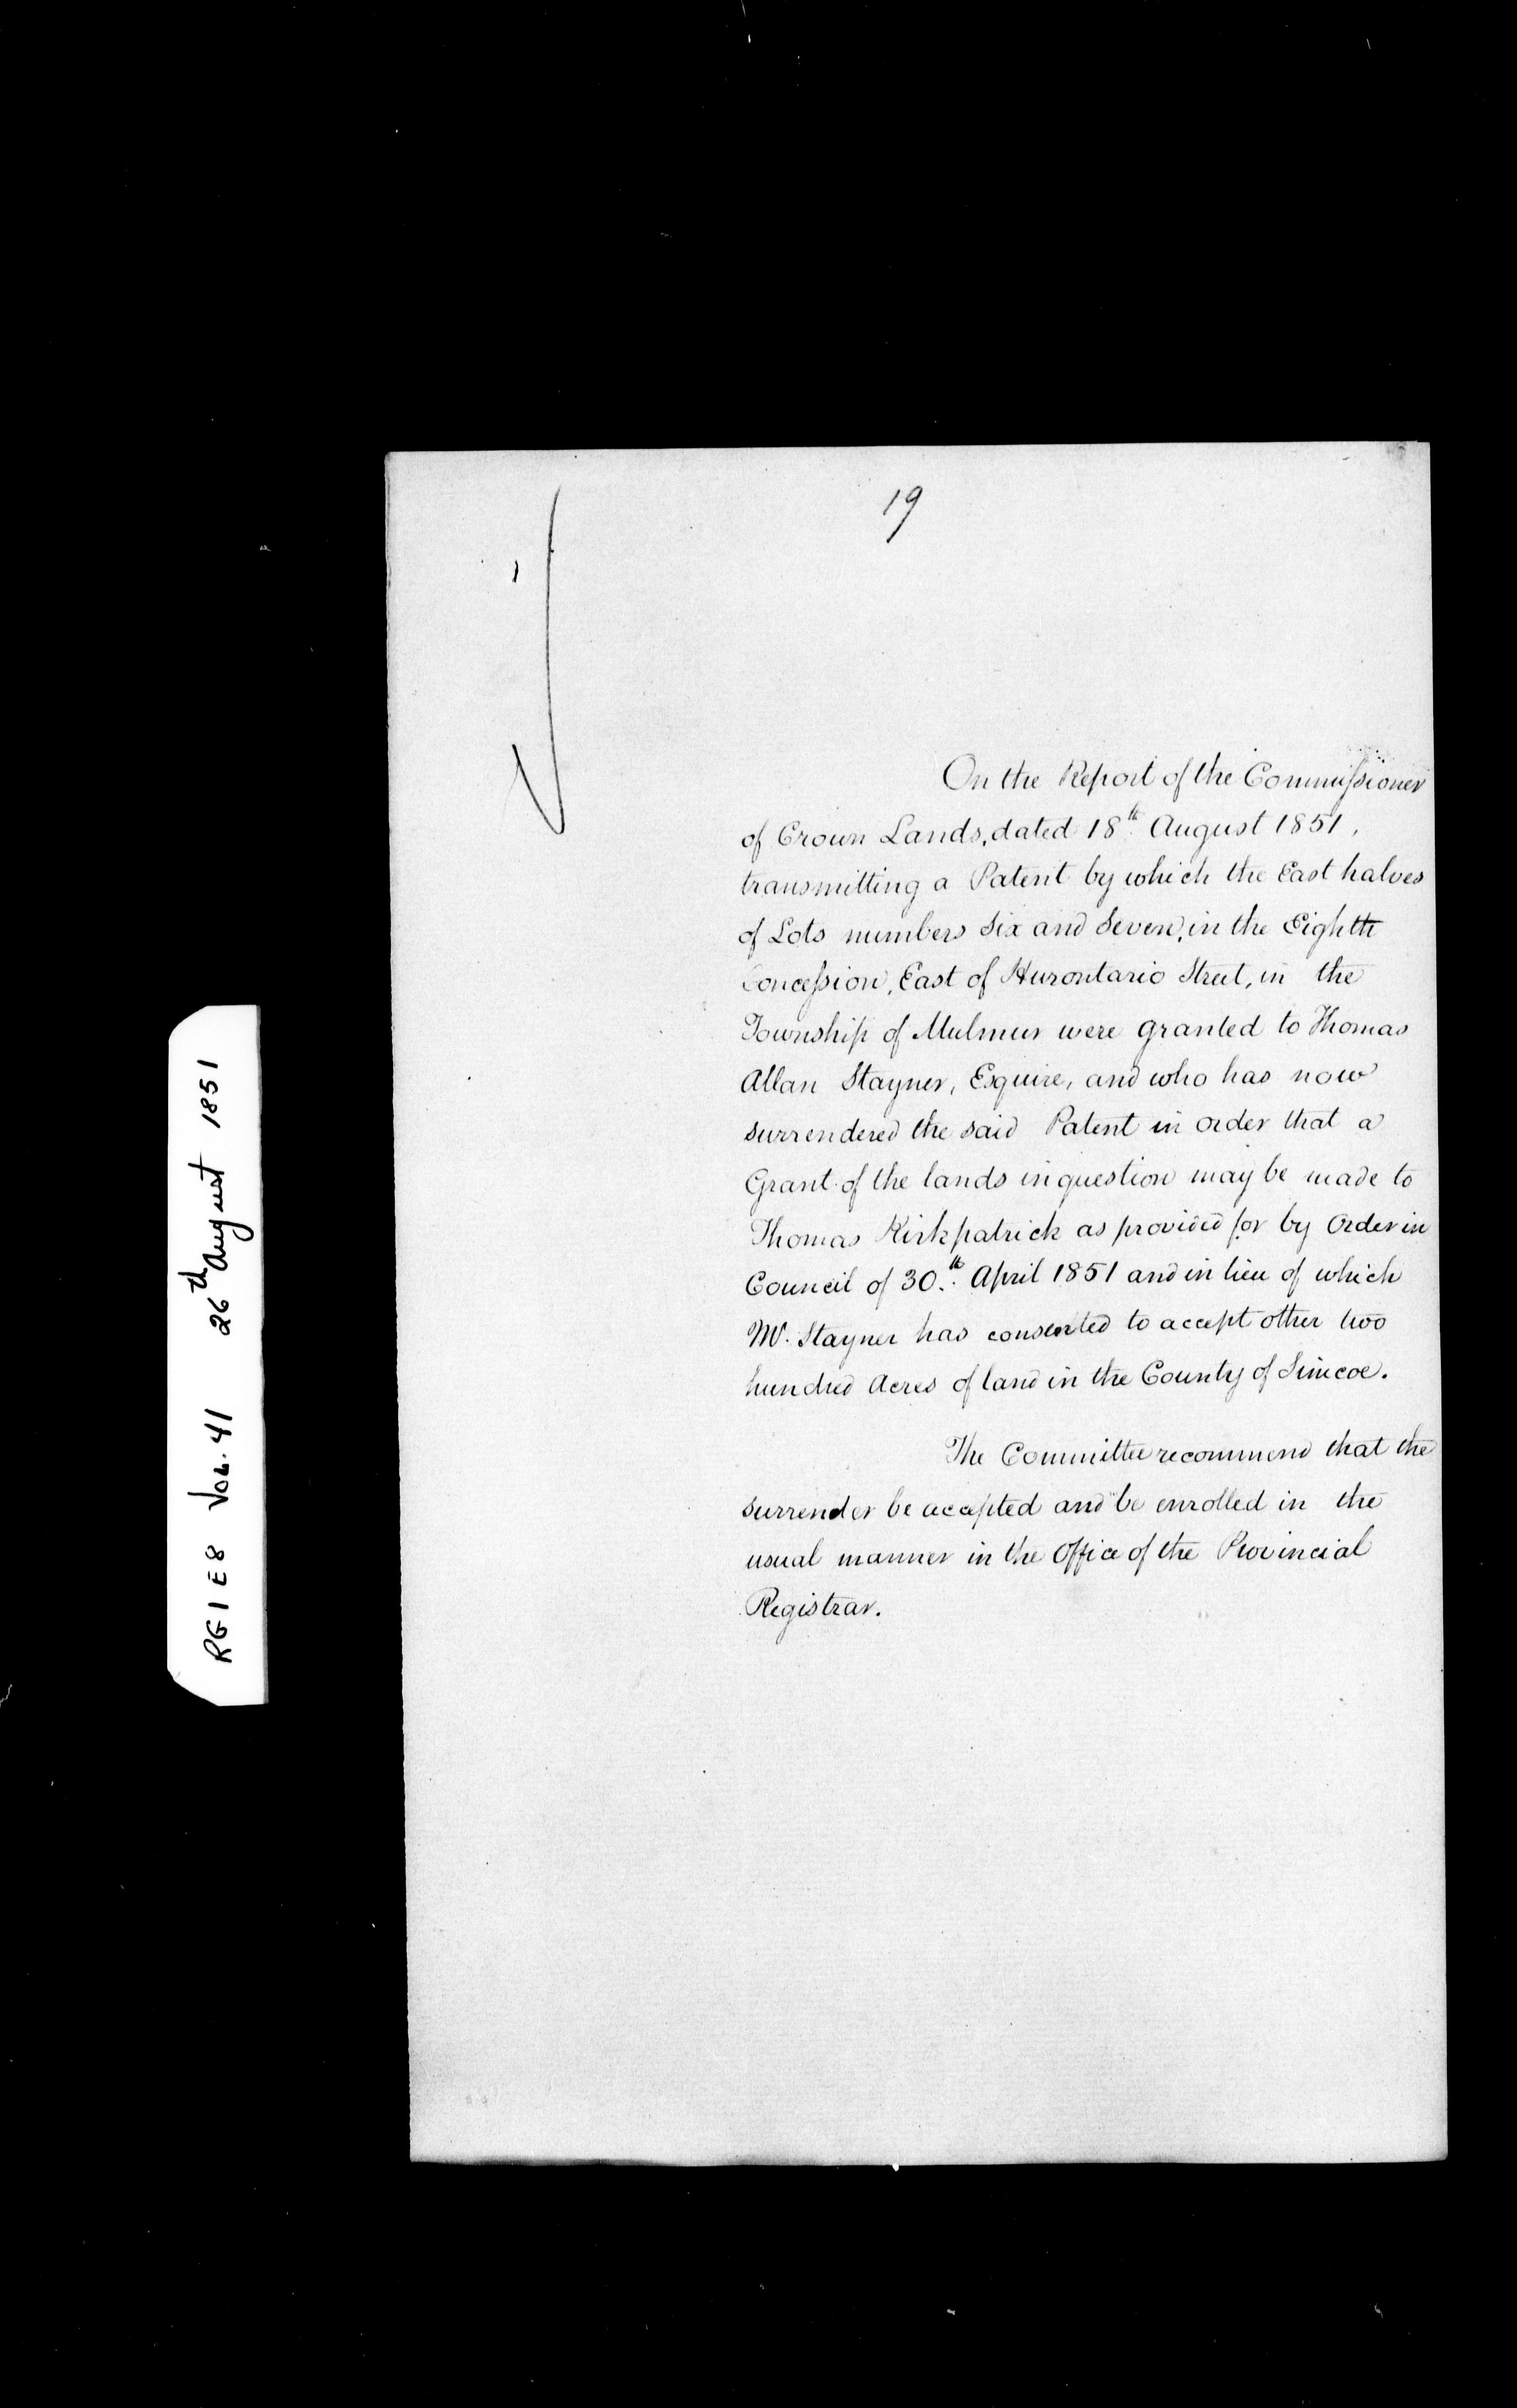 19
On the Report of the Commissioner
of Crown Lands, dated 18th August 1851,
transmitting a Patent by which the East halves
of Lots numbers Six and Seven, in the Eighth
Concession, East of Hurontario Street, in the
Township of Mulmur were granted to Thomas
Allan Stayner, Esquire, and who has now
surrendered the said Patent in order that a
Grant of the lands in question may be made to
Thomas Kirkpatrick as provided for by Order in
Council of 30th April 1851 and in lieu of which
Mr. Stayner has consented to accept other two
hundred Acres of land in the County of Simcoe.
The Committee recommend that the
surrender be accepted and be enrolled in the
usual manner in the Office of the Provincial
Registrar.
RG1 E8 Vol. 41 26th August 1851